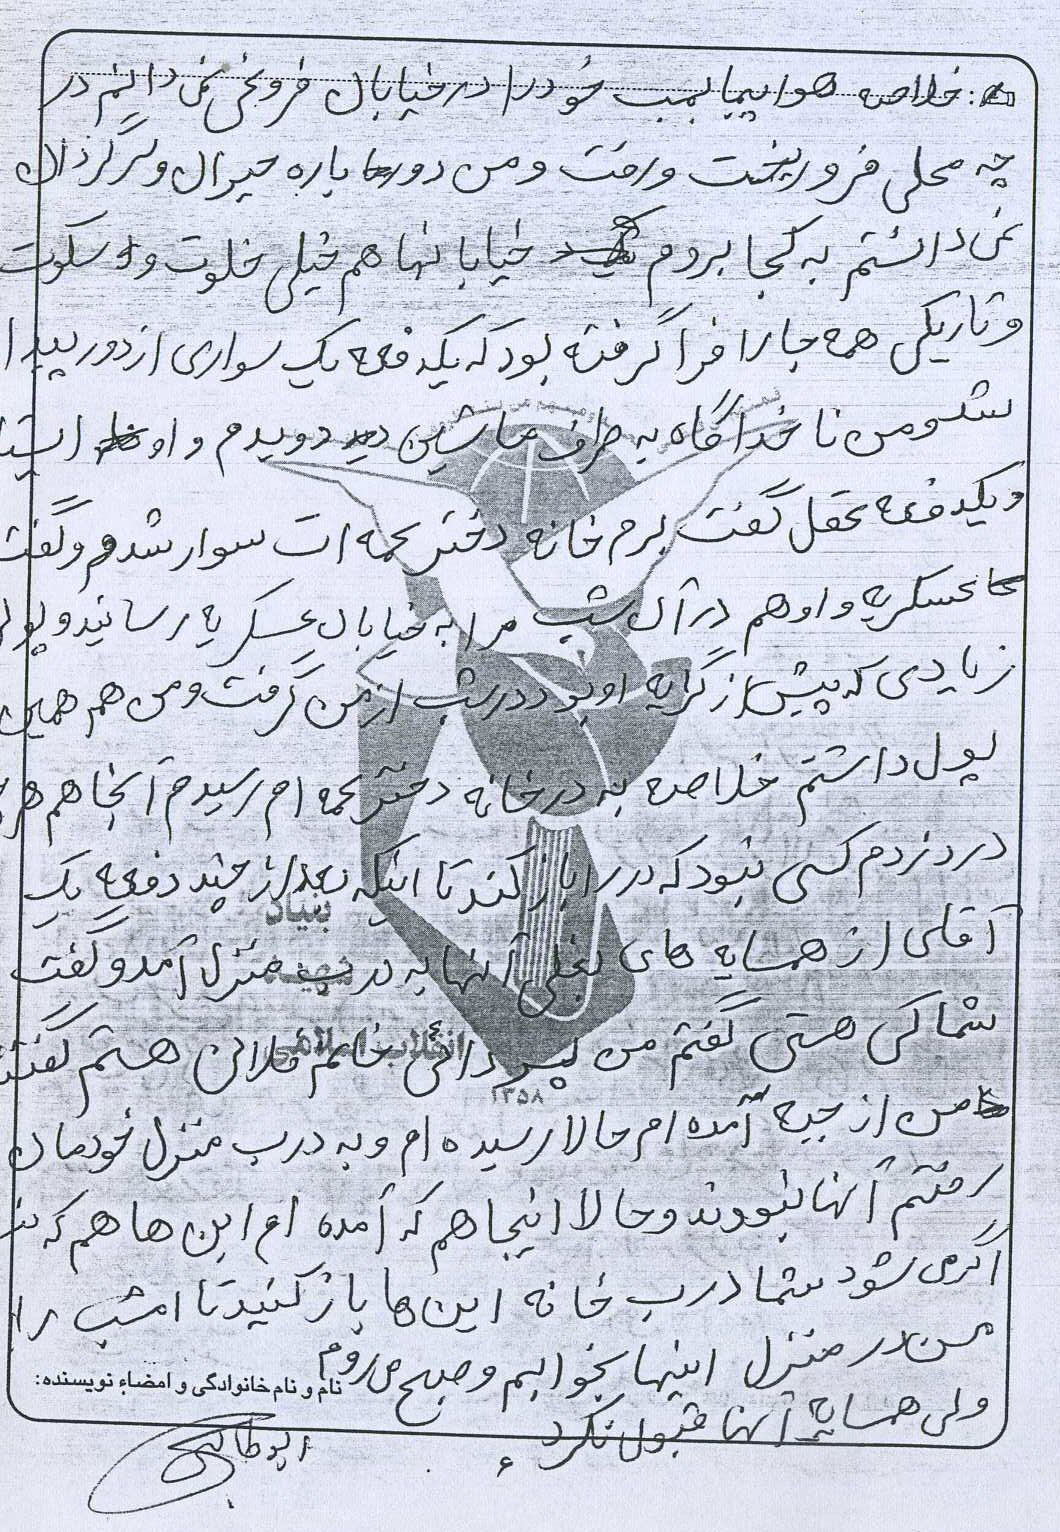 : خلاصه هواپیما بمب خود را در خیابان فروغی نمی دانم در
چه محلی فرو ریخت و رفت و من دوباره حیران و سرگردان
نمی دانستم به کجا بروم خیابانها هم خیلی خلوت و سکوت
و تاریکی همه جا را فرا گرفته بود که یکدفعه یک سواری از دور پیدا
شد و من ناخداگاه به طرف ماشین دویدم و او ایستا
و یکدفعه عقل گفت برم خانه دختر عمه ات سوار شدم و گفت
عسکریه و او هم در آن شب مرا به خیابان عسکریه رسانید و پول
زیادی که بیش از کرایه او بود در شب از من گرفت و من هم همین
پول داشتم خلاصه به در خانه دختر عمه ام رسیدم آنجا هم هر
در زدم کسی نبود که در را باز کند تا اینکه بعد از چند دفعه یک
آقای از همسایه های بغلی آنها به درب منزل آمد و گفت
شما کی هستی گفتم من پسر دائی خانم فلانی هستم گفتند
من از جبهه آمده ام حالا رسیده ام و به درب منزل خودمان
رفتم آنها نبووند و حالا اینجا هم که آمده ام این ها هم که
اگر می شود شما درب خانه این ها باز کنید تا امشب را
من در منزل اینها بخوابم و صبح می روم
نام و نام خانوادگی و امضاء نویسنده:
ولی همسایه آنها قبول نکرد
ابوطالبی
بنیاد
شهید
انقلاب اسلامی
۱۳۵۸